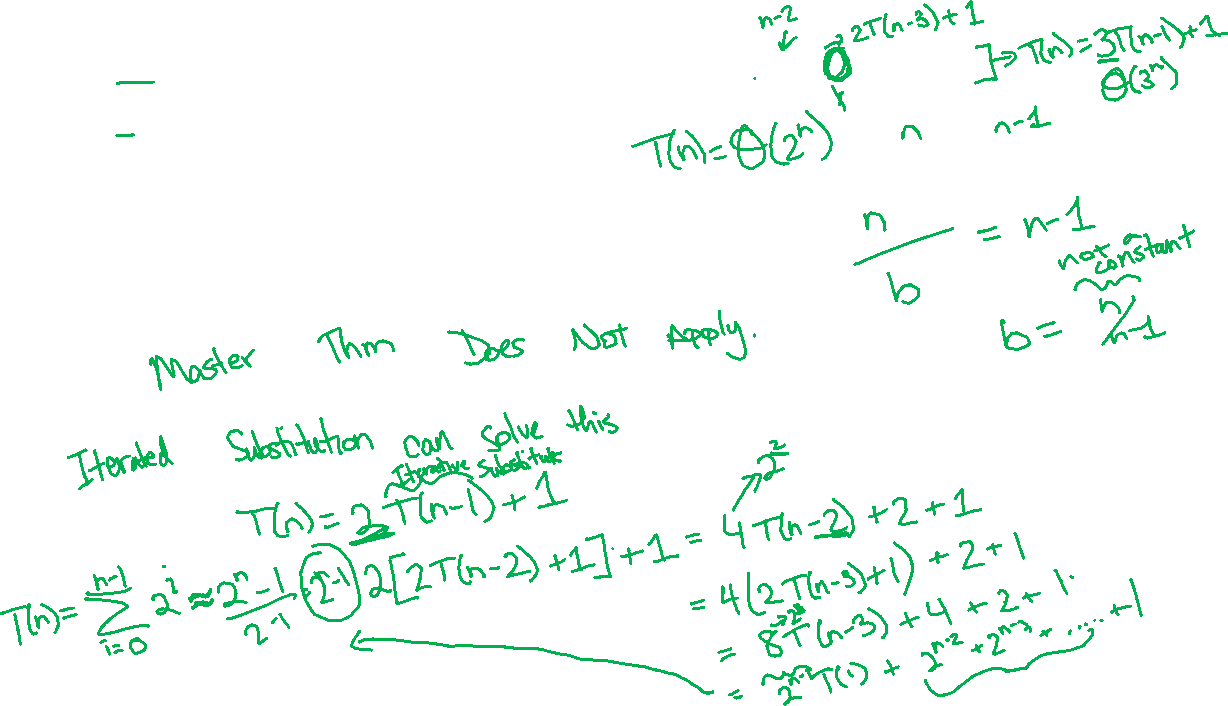 n-2
2T(n-3)+1
]→T(n)=3T(n-1)+1
Θ(3ⁿ)
T(n)=Θ(2ⁿ)
n n-1
n/b = n-1
not constant
b= n/n-1
Master Thm Does Not Apply.
Iterated Substitution can solve this
Iterative Substitute
T(n)=2T(n-1)+1
2[2T(n-2)+1]+1 = 4T(n-2)+2+1
2²
= 4(2T(n-3)+1)+2+1
→2³
= 8T(n-3)+4+2+1
T(n)= n-1 ∑ i=0 2ⁱ ≈ 2ⁿ-1/2-1 2ⁿ-1
T(1) + 2ⁿ⁻² + ..... +1